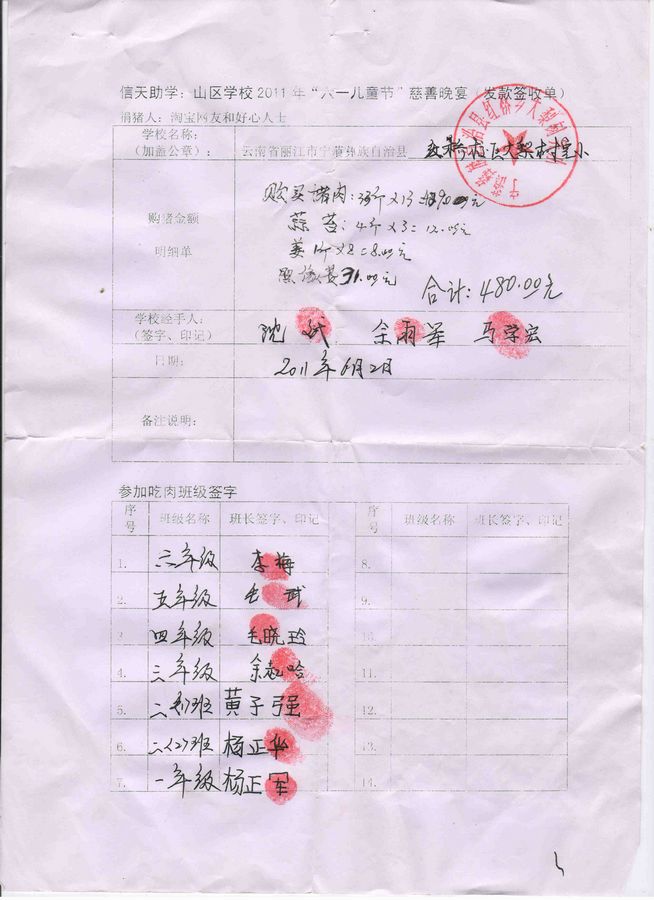 信天助学：山区学校2011年“六一儿童节”慈善晚宴（发款签收单）
捐猪人：淘宝网友和好心人士
学校名称：
（加盖公章）： 云南省丽江市宁蒗彝族自治县
购猪金额
明细单
购买猪肉：
蒜苔：4斤×3=12.00元
姜1斤×8=8.00元
31.00元
合计：480.00元
学校经手人：
（签字、印记） 沈斌 余雨军 马学宏
日期： 2011年6月2日
备注说明：
参加吃肉班级签字
序号 班级名称 班长签字、印记 序号 班级名称 班长签字、印记
1. 六年级 李梅 8.
2. 五年级 毛武 9.
3. 四年级 毛晓玲 10.
4. 三年级 余志哈 11.
5. 二(1)班 黄子强 12.
6. 二(2)班 杨正华 13.
7. 一年级 杨正军 14.